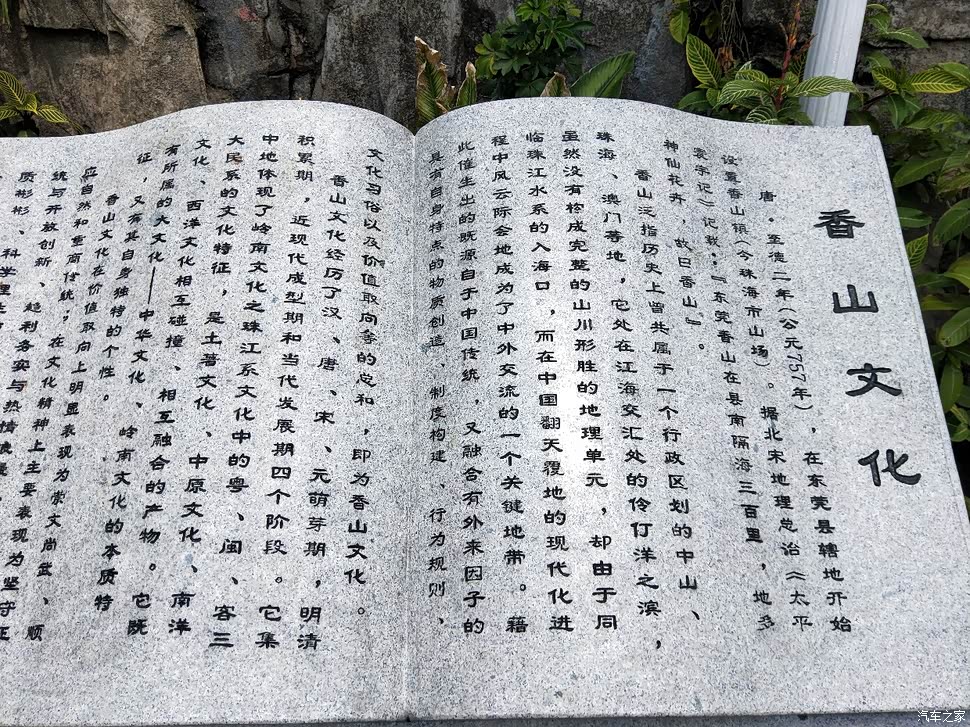 香山文化
唐。至德二年(公元757年)，在东莞县辖地开始
设置香山镇(今珠海市山场)。据北宋地理总诒《太平
寰宇记》记载：『东莞香山在县南隔海三百里，地多
神仙花卉，故曰香山』。
香山泛指历史上曾共属于一个行政区划的中山、
珠海、澳门等地，它处在江海交汇处的伶仃洋之滨，
虽然没有构成完整的山川形胜的地理单元，却由于同
临珠江水系的入海口，而在中国翻天覆地的现代化进
程中风云际会地成为了中外交流的一个关键地带。藉
此催生出的既源自于中国传统，又融合有外来因子的
具有自身特点的物质创造、制度构建、行为规则、
文化习俗以及价值取向等的总和，即为香山文化。
香山文化经历了汉、唐、宋、元萌芽期，明清
积累期，近现代成型期和当代发展期四个阶段。它集
中地体现了岭南文化之珠江系文化中的粤、闽、客三
大民系的文化特征，是土著文化、中原文化、南洋
文化、西洋文化相互碰撞、相互融合的产物。它既
有所属的大文化——中华文化、岭南文化的本质特
征，又有其自身独特的个性。
香山文化在价值取向上明显表现为崇文尚武、顺
应自然和重商传统；在文化精神上主要表现为坚守正
统与开放创新、趋利务实与热情浪漫
质彬彬、科学理
汽车之家